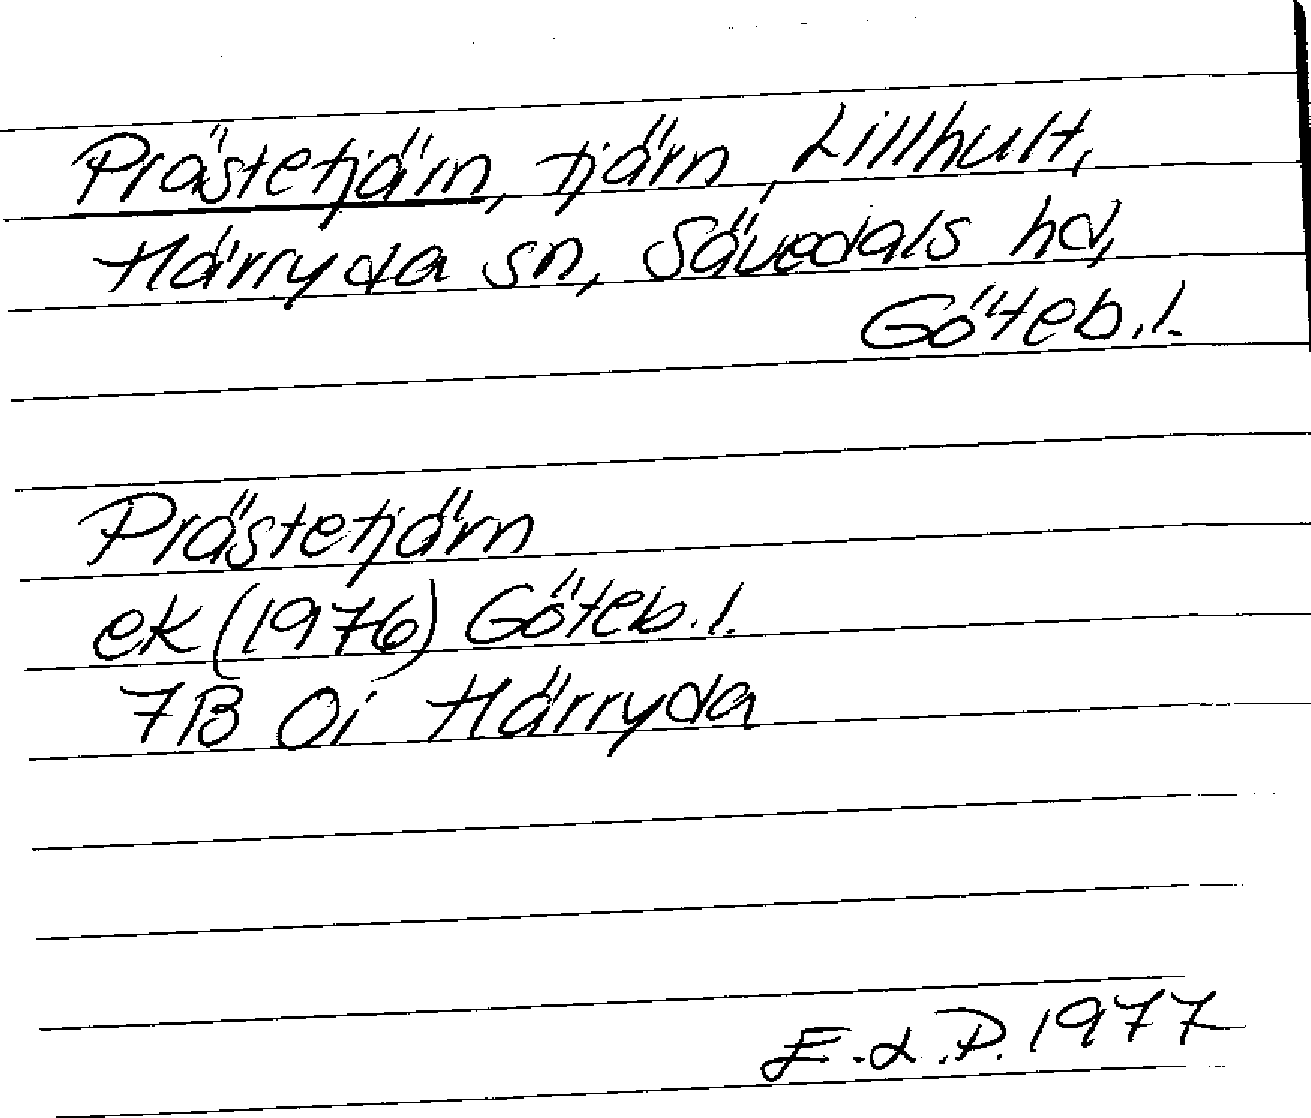 Prästetjärn, tjärn, Lillhult,
Härryda sn, Sävedals hd,
Göteb.l.
Prästetjärn
ek (1976) Göteb.l.
7B 0i Härryda
E.L.P. 1977